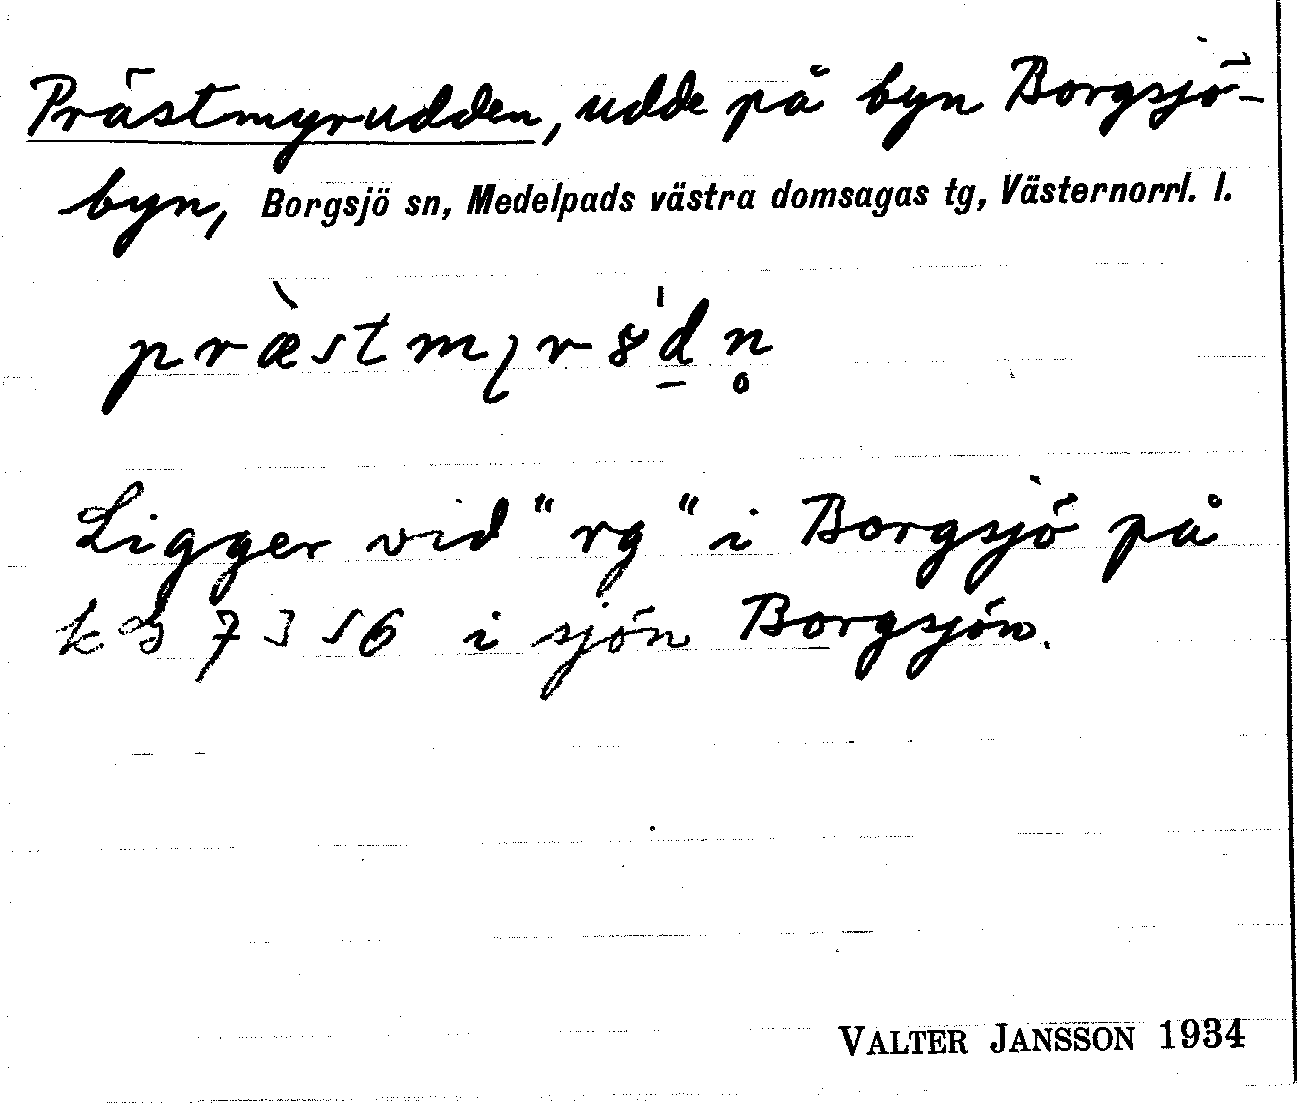 Prästmyrudden, udde på byn Borgsjö-
byn, Borgsjö sn, Medelpads västra domsagas tg, Västernorrl. l.
Ligger vid "rg" i Borgsjö på
kB 7356 i sjön Borgsjön.
VALTER JANSSON 1934